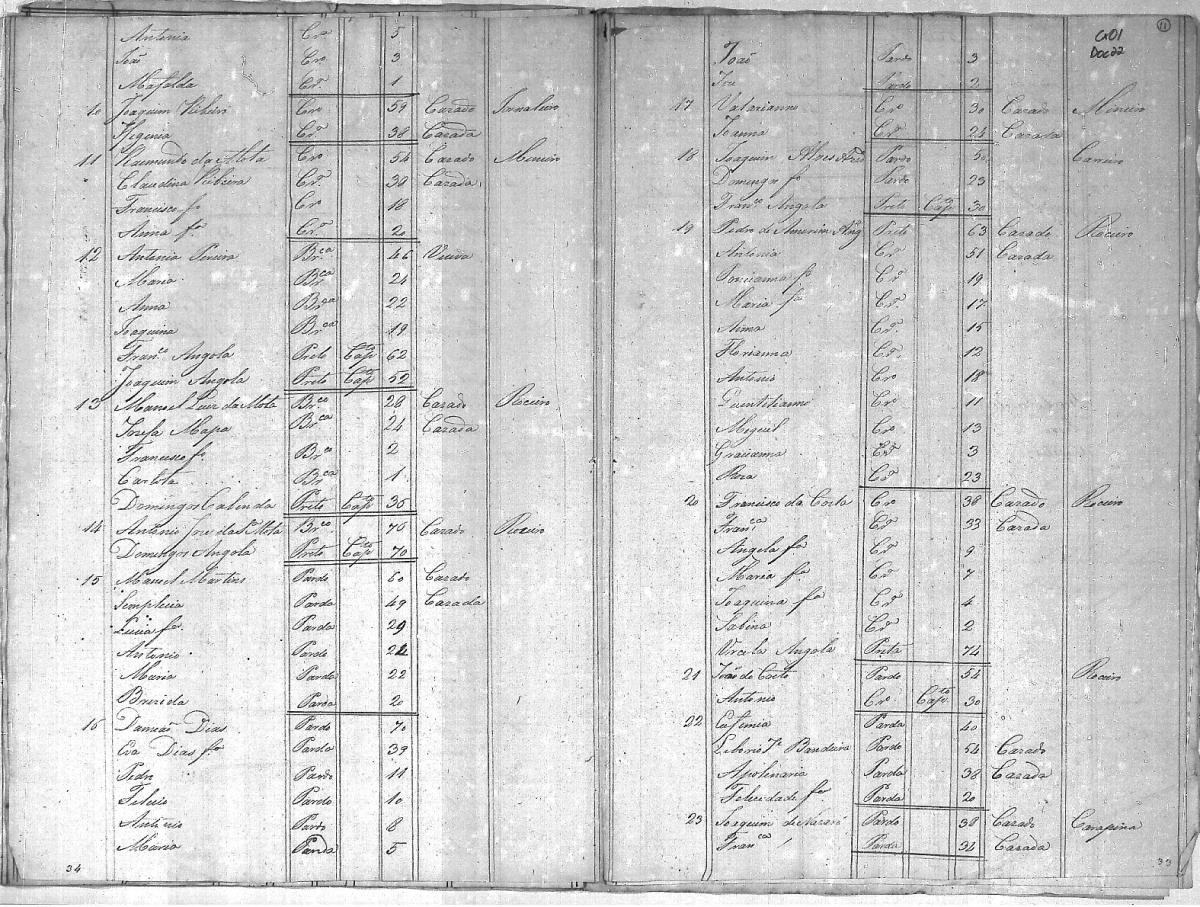 Antonia Cra 5
João Cro 3
Mafalda Cra 1
10 Joaquim Ribeiro Cro 59 Cazado Jornaleiro
Efigenia Cra 38 Cazada
11 Raimundo da Mota Cro 54 Cazado Mineiro
Claudina Ribeira Cra 30 Cazada
Francisco fo Cro 18
Anna fa Cra 20
12 Antonia Pereira Brca 46 Viuva
Maria Brca 24
Anna Brca 22
Joaquina Brca 19
Franco Angola Preto Capto 62
Joaquim Angola Preto Capto 52
13 Manoel Luiz da Mota Brco 28 Cazado Roceiro
Josefa Brca 24 Cazada
Francisco fo Brco 2
Carlota Brca 1
Domingos Cabinda Preto Capto 35
14 Antonio Jose da Sa Mota Brco 70 Cazado Roceiro
Domingos Angola Preto Capto 70
15 Manoel Martins Pardo 60 Cazado
Simplicia Parda 49 Cazada
Lucia fa Parda 29
Antonio Pardo 22
Maria Parda 22
Brizida Parda 20
16 Damião Dias Pardo 70
Eva Dias fa Parda 39
Pedro Pardo 11
Felicio Pardo 10
Antonio Pardo 8
Maria Parda 5
34
11
Cx01
Doc22
João Pardo 3
Pardo 2
17 Valerianno Cro 30 Cazado Mineiro
Joanna Cra 24 Cazada
18 Joaquim Alves Pardo 50 Carreiro
Domingos fo Pardo 23
Franco Angola Preto Capto 30
19 Pedro de Amorim Preto 63 Cazado Roceiro
Antonia Cra 51 Cazada
Ponciana fa Cra 19
Maria fa Cra 17
Anna Cra 15
Florianna Cra 12
Antonio Cro 18
Quentilianno Cro 11
Miguel Cro 13
Gracianna Cra 3
Roza Cra 23
20 Francisco da Costa Cro 38 Cazado Roceiro
Franca Cra 33 Cazada
Angela fa Cra 9
Maria fa Cra 7
Joaquina fa Cra 4
Sabina Cra 2
Urcula Angola Preta 74
21 João do Couto Pardo 54 Roceiro
Antonio Cro Capto 30
22 Eufemia Parda 40
Liborio Bandeira Pardo 54 Cazado
Apolinaria Parda 38 Cazada
Felicidade fa Parda 20
23 Joaquim de Nazaré Pardo 38 Cazado Carapina
Franca Parda 34 Cazada
33